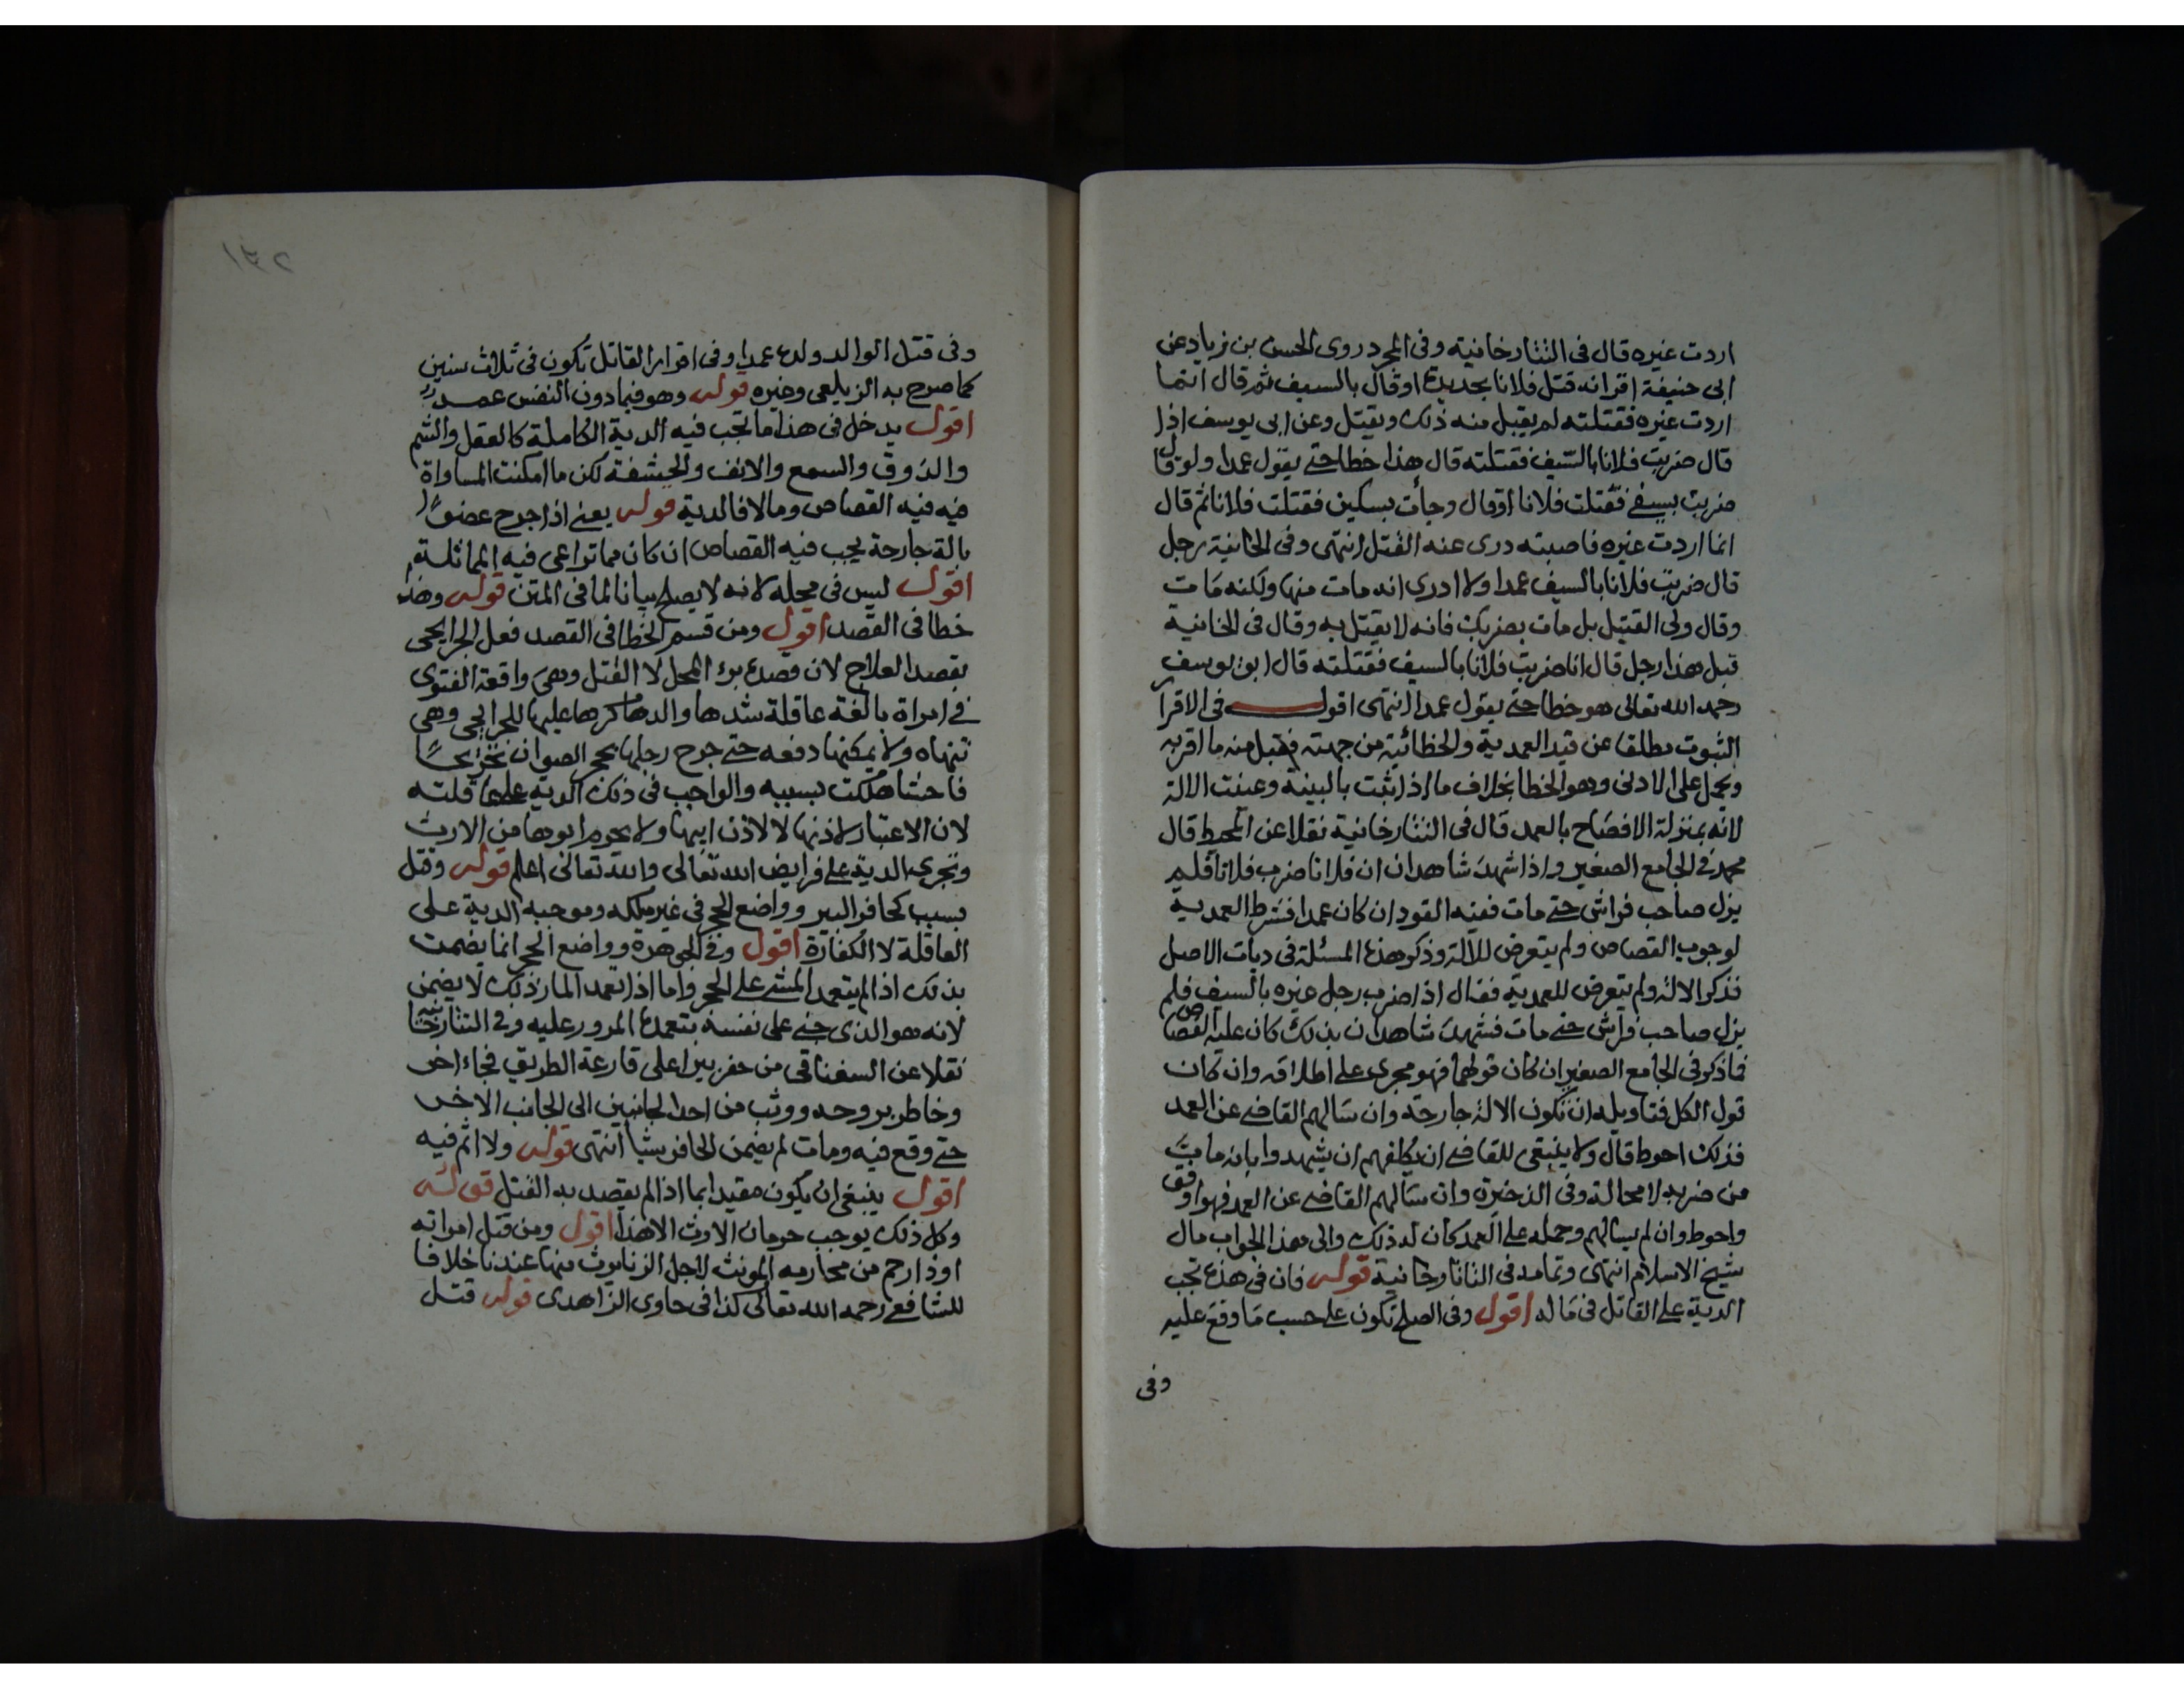 اردت غيره قال فى التتارخانية وفى المجرد روى الحسن بن زياد عن
ابى حنيفة اقر انه قتل فلانا بحديدة او قال بالسيف ثم قال انما
اردت غيره فقتلته لم يقبل منه ذلك ويقتل وعن ابى يوسف اذا
قال ضربت فلانا بالسيف فقتلته قال هذا خطا حتى يقول عمدا ولو قال
ضربت بسيفى فقتلت فلانا او قال وجأت بسكين فقتلت فلانا ثم قال
انما اردت غيره فاصبته درى عنه القتل انتهى وفى الخانية رجل
قال ضربت فلانا بالسيف عمدا ولا ادرى انه مات منها ولكنه مات
وقال ولى القتيل بل مات بضربك فانه لا يقتل به وقال فى الخانية
قبل هذا رجل قال انا ضربت فلانا بالسيف فقتلته قال ابو يوسف
رحمه الله تعالى هو خطا حتى يقول عمدا انتهى اقول فى الاقرار
الثبوت مطلقا عن قيد العمدية والخطائية من جهته فيقبل منه ما اقر به
ويحمل على الادنى وهو الخطا بخلاف ما اذا ثبت بالبينة وعينت الالة
لانه بمنزلة الافصاح بالعمد قال فى التتارخانية نقلا عن المحيط قال
محمد فى الجامع الصغير واذا شهد شاهدان ان فلانا ضرب فلانا فلم
يزل صاحب فراش حتى مات ففيه القود ان كان عمدا فشرط العمدية
لوجوب القصاص ولم يتعرض للالة وذكر هذه المسئلة فى ديات الاصل
فذكر الالة ولم يتعرض للعمدية فقال اذا ضرب رجل غيره بالسيف فلم
يزل صاحب فراش حتى مات فشهد شاهدان بذلك كان عليه القصاص
فما ذكر فى الجامع الصغير ان كان قولهما فهو مجرى على اطلاقه وان كان
قول الكل فتاويله ان تكون الالة جارحة وان سالهم القاضى عن العمد
فذلك احوط قال ولا ينبغى للقاضى ان يكلفهم ان يشهدوا بانه مات
من ضربه لا محالة وفى الذخيرة وان سالهم القاضى عن العمد فهو اوفق
واحوط وان لم يسالهم وحمله على العمد كان له ذلك والى هذا الجواب مال
شيخ الاسلام انتهى وتمامه فى التاتارخانية قوله فان فى هذه تجب
الدية على القاتل فى ماله اقول وفى الصلح تكون على حسب ما وقع عليه
وفى
١٣٢
وفى قتل الوالد ولده عمدا وفى اقرار القاتل تكون فى ثلاث سنين
كما صرح به الزيلعى وغيره قوله وهو فيما دون النفس عمد
اقول يدخل فى هذا ما تجب فيه الدية الكاملة كالعقل والشم
والذوق والسمع والانف والحشفة لكن ما امكنت المساواة
فيه فيه القصاص وما لا فالدية قوله يعنى اذا جرح عضوا
بالة جارحة يجب فيه القصاص ان كان مما تراعى فيه المماثلة
اقول ليس فى محله لانه لا يصلح بيانا لما فى المتن قوله
خطا فى القصد اقول ومن قسم الخطا فى القصد فعل الجرايحى
بقصد العلاج لان قصده برء المحل لا القتل وهى واقعة الفتوى
فى امراة بالغة عاقلة شدها والدها مكرها عليها للجرايحى وهى
تنهاه ولا يمكنها دفعه حتى جرح رجلها بحجر الصوان جرحا
فاحشا هلكت بسببه والواجب فى ذلك الدية على عاقلته
لان الاعتبار لاذنها لا لاذن ابيها ولا يحرم ابوها من الارث
وتجرى الدية على فرايض الله تعالى والله تعالى اعلم قوله وقتل
بسبب كحافر البير وواضع الحجر فى غير ملكه وموجبه الدية على
العاقلة لا الكفارة اقول وفى الجوهرة وواضع الحجر انما يضمن
بذلك اذا لم يتعمد المشى على الحجر واما اذا تعمد المار ذلك لا يضمن
لانه هو الذى جنى على نفسه بتعمده المرور عليه وفى التتارخانية
نقلا عن السغناقى من حفر بيرا على قارعة الطريق فجاء اخر
وخاطر بروحه ووثب من احد الجانبين الى الجانب الاخر
حتى وقع فيه ومات لم يضمن الحافر شيا انتهى قوله ولا اثم فيه
اقول ينبغى ان يكون مقيدا بما اذا لم يقصد به القتل قوله
وكل ذلك يوجب حرمان الارث الا هذا اقول ومن قتل امراته
او ذا رحم من محارمه المونث لاجل الزنا يرث منها عندنا خلافا
للشافعى رحمه الله تعالى كذا فى حاوى الزاهدى قوله قتل